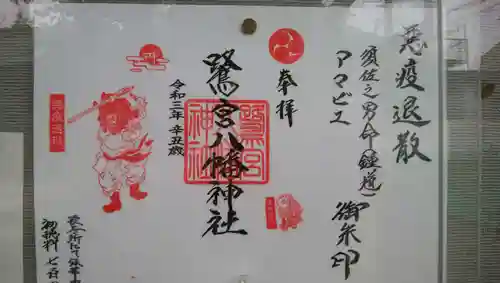 悪疫退散
須佐之男命(鍾道)
アマビエ
御朱印
奉拝
鷺宮八幡神社
令和三年 辛丑歳
鷺宮
神社
初穂料 七百